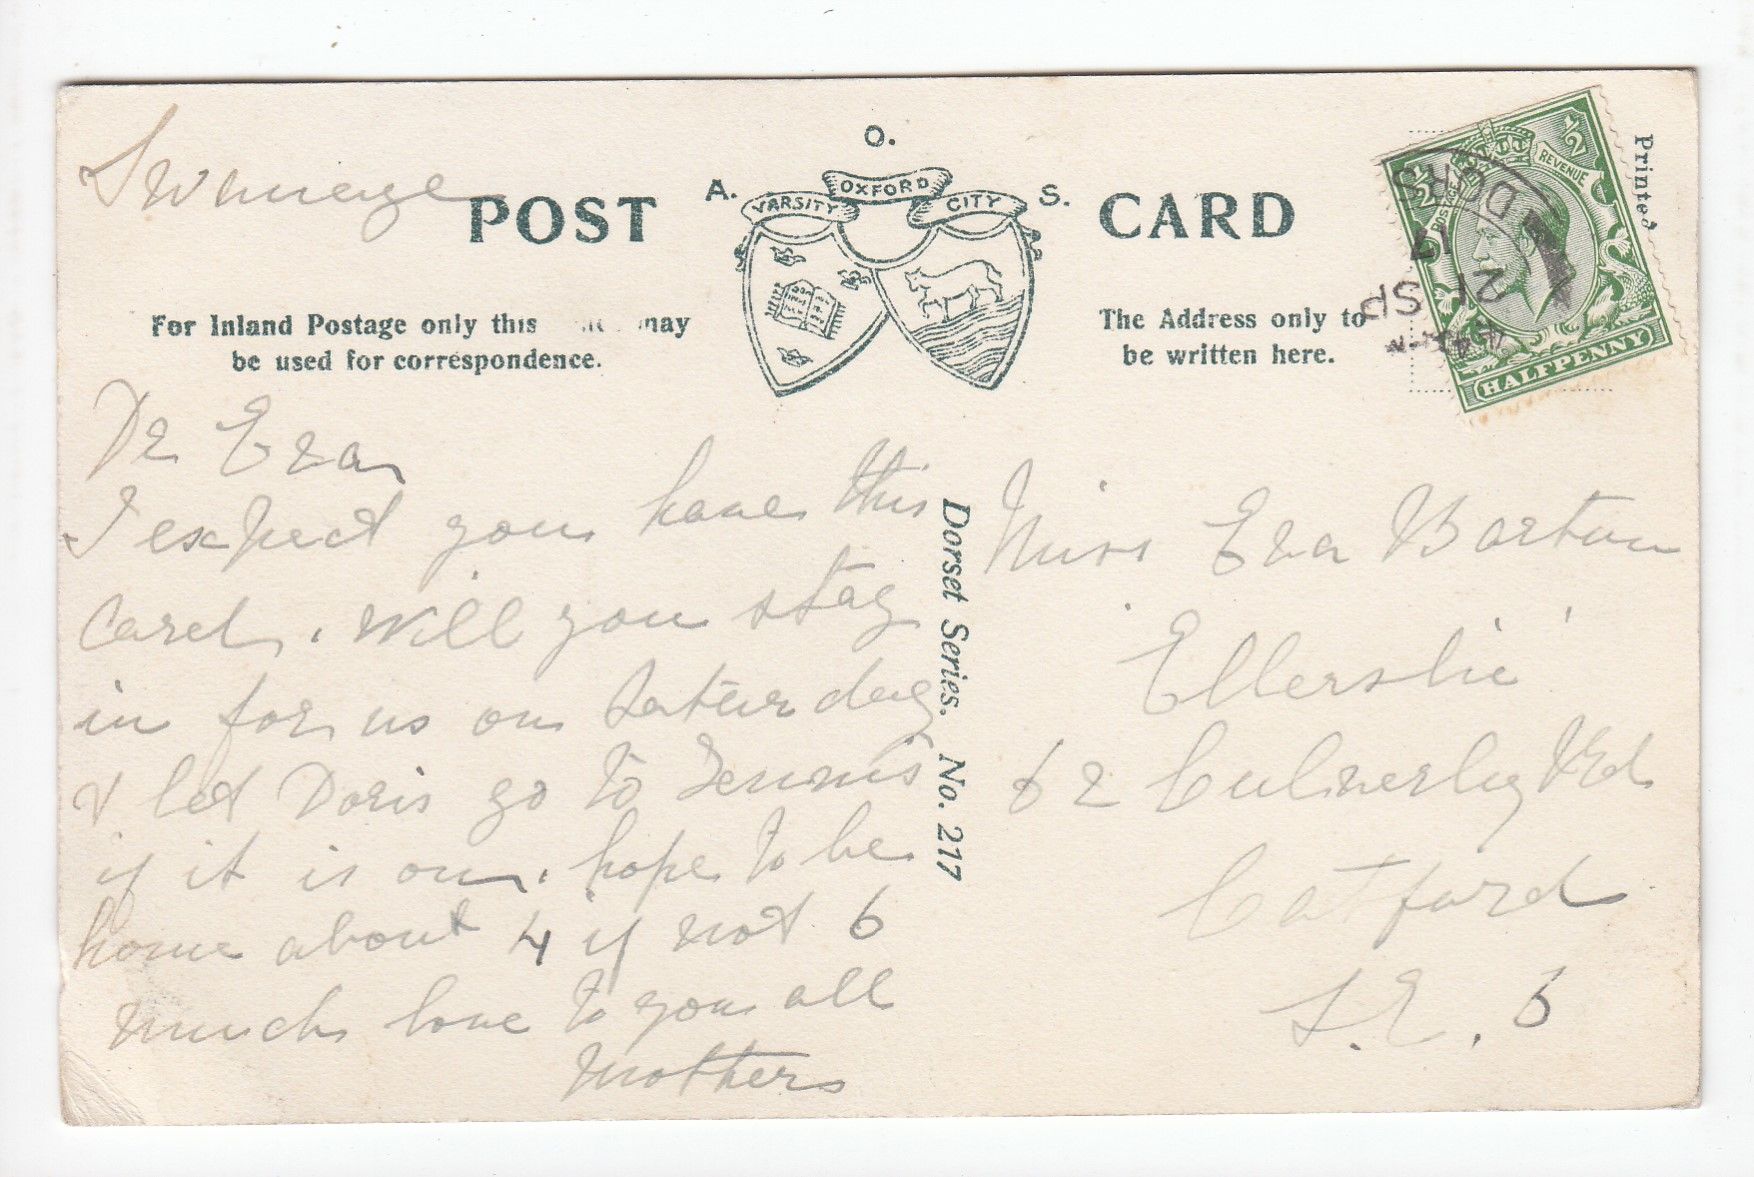 Swanage
POST CARD
O.
A. VARSITY OXFORD CITY S.
For Inland Postage only this may
be used for correspondence.
The Address only to
be written here.
Printed
POSTAGE REVENUE
1/2 1/2
HALFPENNY
21 SP
17
Dr Eva
I expect you have this
Card. Will you stay
in for us on Saturday
& let Doris go to Tennis
if it is on. hope to be
home about 4 if not 6
much love to you all
Mother
Dorset Series. No. 217
Miss Eva Barton
'Ellerslie'
62 Culverley Rd
Catford
S.E. 6